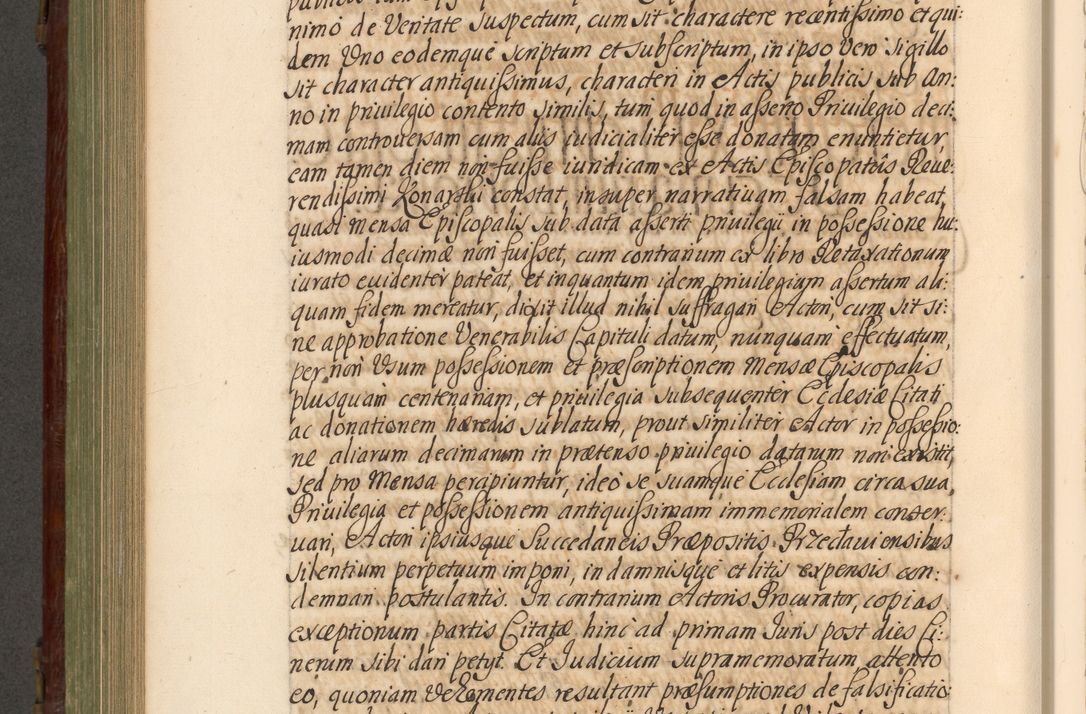 nimo de Veritate suspectum, cum sit charactere recentissimo et qui:
dem Uno eodemque scriptum et subscriptum, in ipso Vero sigillo
sit character antiquissimus, characteri in Actis publicis sub An:
no in privilegio contento similis, tum quod in asserto Privilegio deci:
mam controversam cum aliis iudicialiter esse donatam enuntietur,
eam tamen diem non fuisse iuridicam ex Actis Episcopatûs Reve:
rendissimi Konarski constat, insuper narrativam falsam habeat,
quasi mensa Episcopalis sub data asserti privilegii in possessione hu:
iusmodi decimæ non fuisset, cum contrarium ex libro Retaxationum
iurato evidenter pateat, et inquantum idem privilegium assertum ali:
quam fidem mereatur, dixit illud nihil suffragari Actori, cum sit si:
ne approbatione Venerabilis Capituli datum, nunquam effectuatum,
per non Usum possessionem et præscriptionem Mensæ Episcopalis
plusquam centenariam, et privilegia subsequenter Ecclesiæ Citati
ac donationem hæredis sublatum, prout similiter Actor in possessio:
ne aliarum decimarum in prætenso privilegio datarum non existit,
sed pro Mensa percipiuntur, ideo se suamque Ecclesiam circa sua,
Privilegia et possessionem antiquissimam immemorialem conser:
vari, Actori ipsiusque Succedaneis Præpositis Przecłaviensibus
silentium perpetuum imponi, in damnisque et litis expensis con:
demnari postulantis. In contrarium Actoris Procurator, copias
exceptionum partis Citatæ hinc ad primam Juris post dies Ci:
nerum sibi dari petyt. Et Judicium supramemoratum attento
eo, quoniam Vehementes resultant præsumptiones de falsificatio: